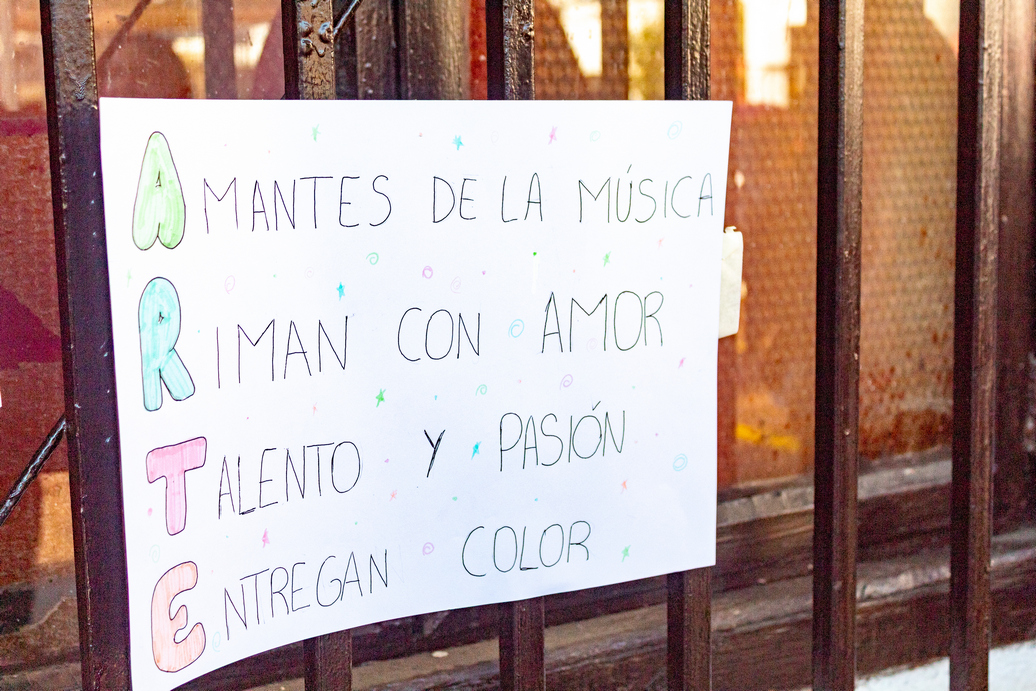 AMANTES DE LA MÚSICA
RIMAN CON AMOR
TALENTO Y PASIÓN
ENTREGAN COLOR